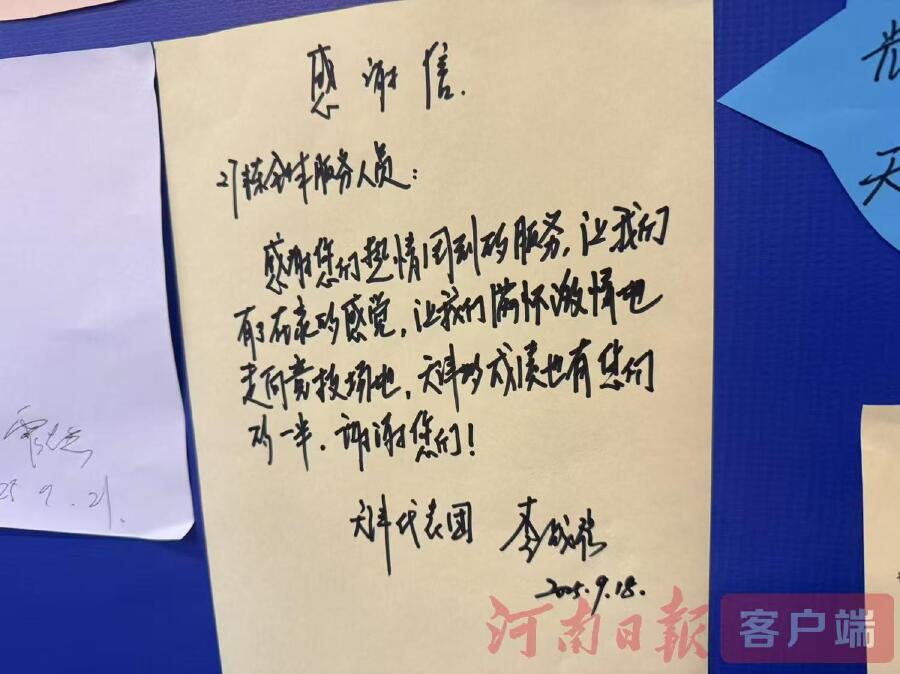 感谢信.
服务人员:
感谢您们热情周到的服务,让我们
有了在家的感觉,让我们满怀激情地
走向竞技场地,天津的成绩也有您们
的一半.谢谢您们!
天津代表团
2025.9.18.
25 9.21.
河南日报 客户端
天